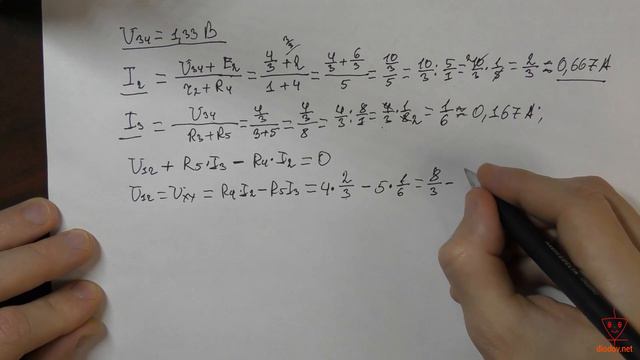 U34 = 1,33 В
I2 = (U34 + E2)/(r2 + R4) = (4/3 + 2)/(1 + 4) = (4/3 + 6/3)/5 = (10/3)/5 = 10/3 : 5/1 = 10/3 · 1/5 = 2/3 ≈ 0,667 А
I3 = U34/(R3 + R5) = (4/3)/(3+5) = (4/3)/8 = 4/3 : 8/1 = 4/3 · 1/8 2 = 1/6 ≈ 0,167 А;
U12 + R5·I3 − R4·I2 = 0
U12 = Uхх = R4 I2 − R5 I3 = 4 · 2/3 − 5 · 1/6 = 8/3 −
diodov.net